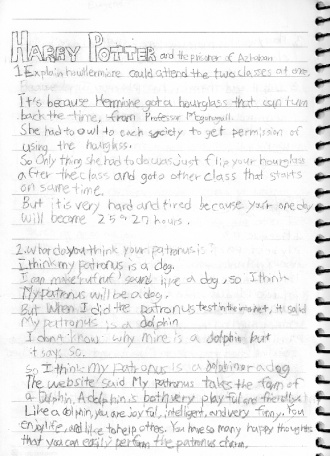 HARRY POTTER and the prisoner of Azkaban
1. Explain how Hermione could attend the two classes at one.
It's because Hermione got a hourglass that can turn
back the time, from Professor Magonagall.
She had to owl to each society to get permission of
using the hourglass.
So Only thing she had to do was, just flip your hourglass
after the class and go to other class that starts
on same time.
But it is very hard and tired because your one day
will become 25 or 27 hours.
2. What do you think your patronus is?
I think my patronus is a dog.
I can make sound like a dog, so I think
My patronus will be a dog.
But when I did the patronus test in the internet, it said
My patronus is a dolphin
I don't know why mine is a dolphin but
it says so.
So I think my patronus is a dolphin or a dog
The website said My patronus takes the form of
a Dolphin. A dolphin is both very playful and friendly!
Like a dolphin, you are joyful, intelligent, and very funny. You
enjoy life, and like to help others. You have so many happy thoughts
that you can easily perform the patronus charm.